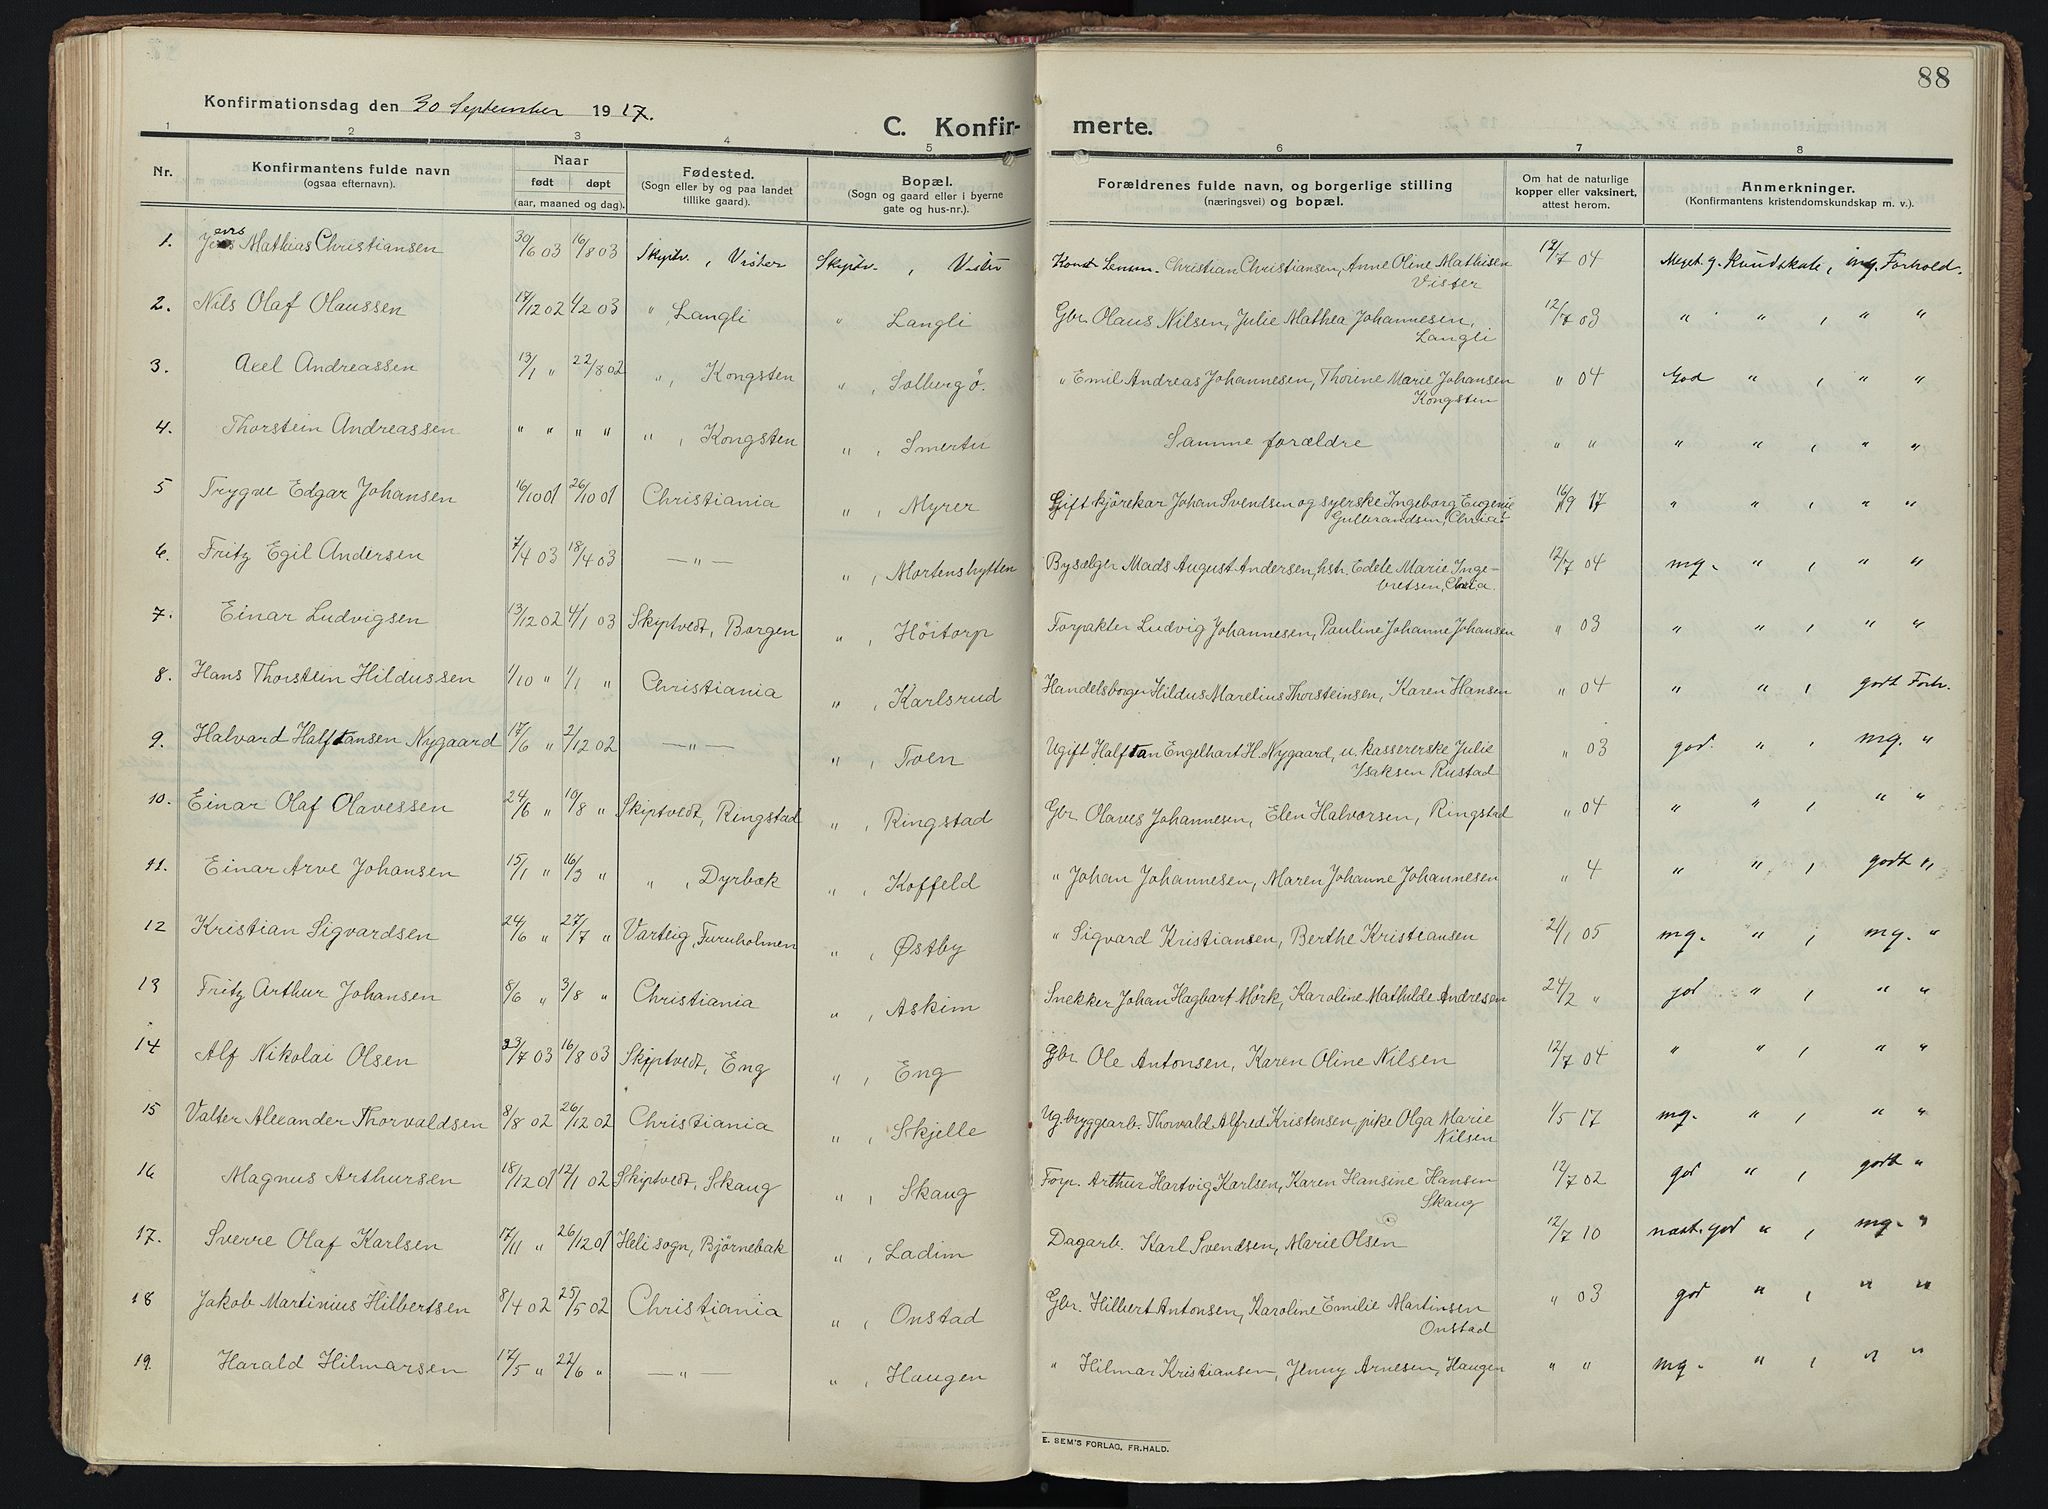 88
Konfirmationsdag den 30 September 1917.
C. Konfir- merte.
1 2 3 4 5 6 7 8
Nr.
Konfirmantens fulde navn
(ogsaa efternavn).
Naar
født døpt
(aar, maaned og dag).
Fødested.
(Sogn eller by og paa landet
tillike gaard).
Bopæl.
(Sogn og gaard eller i byerne
gate og hus-nr.).
Forældrenes fulde navn, og borgerlige stilling
(næringsvei) og bopæl.
Om hat de naturlige
kopper eller vaksinert,
attest herom.
Anmerkninger.
(Konfirmantens kristendomskundskap m. v.).
1. Jens Mathias Christiansen 30/6 03 16/8 03 Skiptv., Vister Skiptv., Vister Christian Christiansen, Anne Oline Mathisen 12/7 04 Meget g. Kundskab, mg. Forhold.
Vister
2. Nils Olaf Olaussen 17/12 02 4/2 03 " Langli " Langli Gbr. Olaus Nilsen, Julie Mathea Johannesen, 12/7 03 " " , " "
Langli
3. Axel Andreassen 13/1 " 22/8 02 ", Kongsten ", Solbergö. " Emil Andreas Johannesen, Thorine Marie Johansen " 04 God " , " "
Kongsten
4. Thorstein Andreassen " " " " ", Kongsten ", Smertu Samme forældre " " " " , " "
5 Trygve Edgar Johansen 16/10 01 26/10 01 Christiania ", Myrer Gift kjörekar Johan Svendsen og syerske Ingeborg Eugenie 16/9 17 " " , " "
Gulbrandsen, Chria
6. Fritz Egil Andersen 7/4 03 18/4 03 — " — ", Mortenshytten Bysælger Mads August Andersen, hstr. Edele Marie Inge- 12/7 04 mg. " , " "
bretsen, Chria.
7. Einar Ludvigsen 13/12 02 4/1 03 Skiptvedt, Borgen ", Höitorp Forpakter Ludvig Johannesen, Pauline Johanne Johansen " 03 " " , " "
8. Hans Thorstein Hildussen 1/10 " 1/1 " Christiania ", Karlsrud Handelsborger Hildus Marelius Thorsteinsen, Karen Hansen " 04 " " , godt Forh.
9. Halvard Halftansen Nygaard 17/6 " 2/12 02 — " — ", Toen Ugift Halftan Engelhart H. Nygaard, u. kassererske Julie " 03 god. " , mg. "
Isaksen Rustad
10. Einar Olaf Olavessen 24/6 " 19/8 " Skiptvedt, Ringstad ", Ringstad Gbr. Olaves Johannesen, Elen Halvorsen, Ringstad " 04 " " , " "
11. Einar Arve Johansen 15/1 " 16/3 " ", Dyrbæk ", Koffeld " Johan Johannesen, Maren Johanne Johannesen " 4 " " , godt "
12 Kristian Sigvardsen 24/6 " 27/7 " Varteig, Furuholmen ", Østby " Sigvard Kristiansen, Berthe Kristiansen 21/1 05 mg. " , mg. "
13 Fritz Arthur Johansen 8/6 " 3/8 " Christiania ", Askim Snekker Johan Hagbart Mörk, Karoline Mathilde Andresen 24/2 " god " , " "
14 Alf Nikolai Olsen 23/7 03 16/8 03 Skiptvedt, Eng ", Eng Gbr Ole Antonsen, Karen Oline Nilsen 12/7 04 " " , " "
15 Valter Alexander Thorvaldsen 8/8 02 26/12 02 Christiania ", Skjelle Ug. byggearb. Thorvald Alfred Kristensen, pike Olga Marie 1/5 17 mg. " , " "
Nilsen
16 Magnus Arthursen 18/12 01 12/1 02 Skiptvedt, Skaug ", Skaug Forp. Arthur Hartvig Karlsen, Karen Hansine Hansen 12/7 02 god " , godt "
Skaug
17. Sverre Olaf Karlsen 17/11 " 26/12 01 Heli sogn, Bjørnebæk ", Ladim Dagarb. Karl Svendsen, Marie Olsen 12/7 10 næst. god " , mg. "
18 Jakob Martinius Hilbertsen 8/4 02 25/5 02 Christiania ", Onstad Gbr. Hilbert Antonsen, Karoline Emilie Martinsen " 03 god " , " "
Onstad
19. Harald Hilmarsen 17/5 " 22/6 " — " — ", Haugen " Hilmar Kristiansen, Jenny Arnesen, Haugen " " mg. " , " "
E. SEM'S FORLAG, FR.HALD.